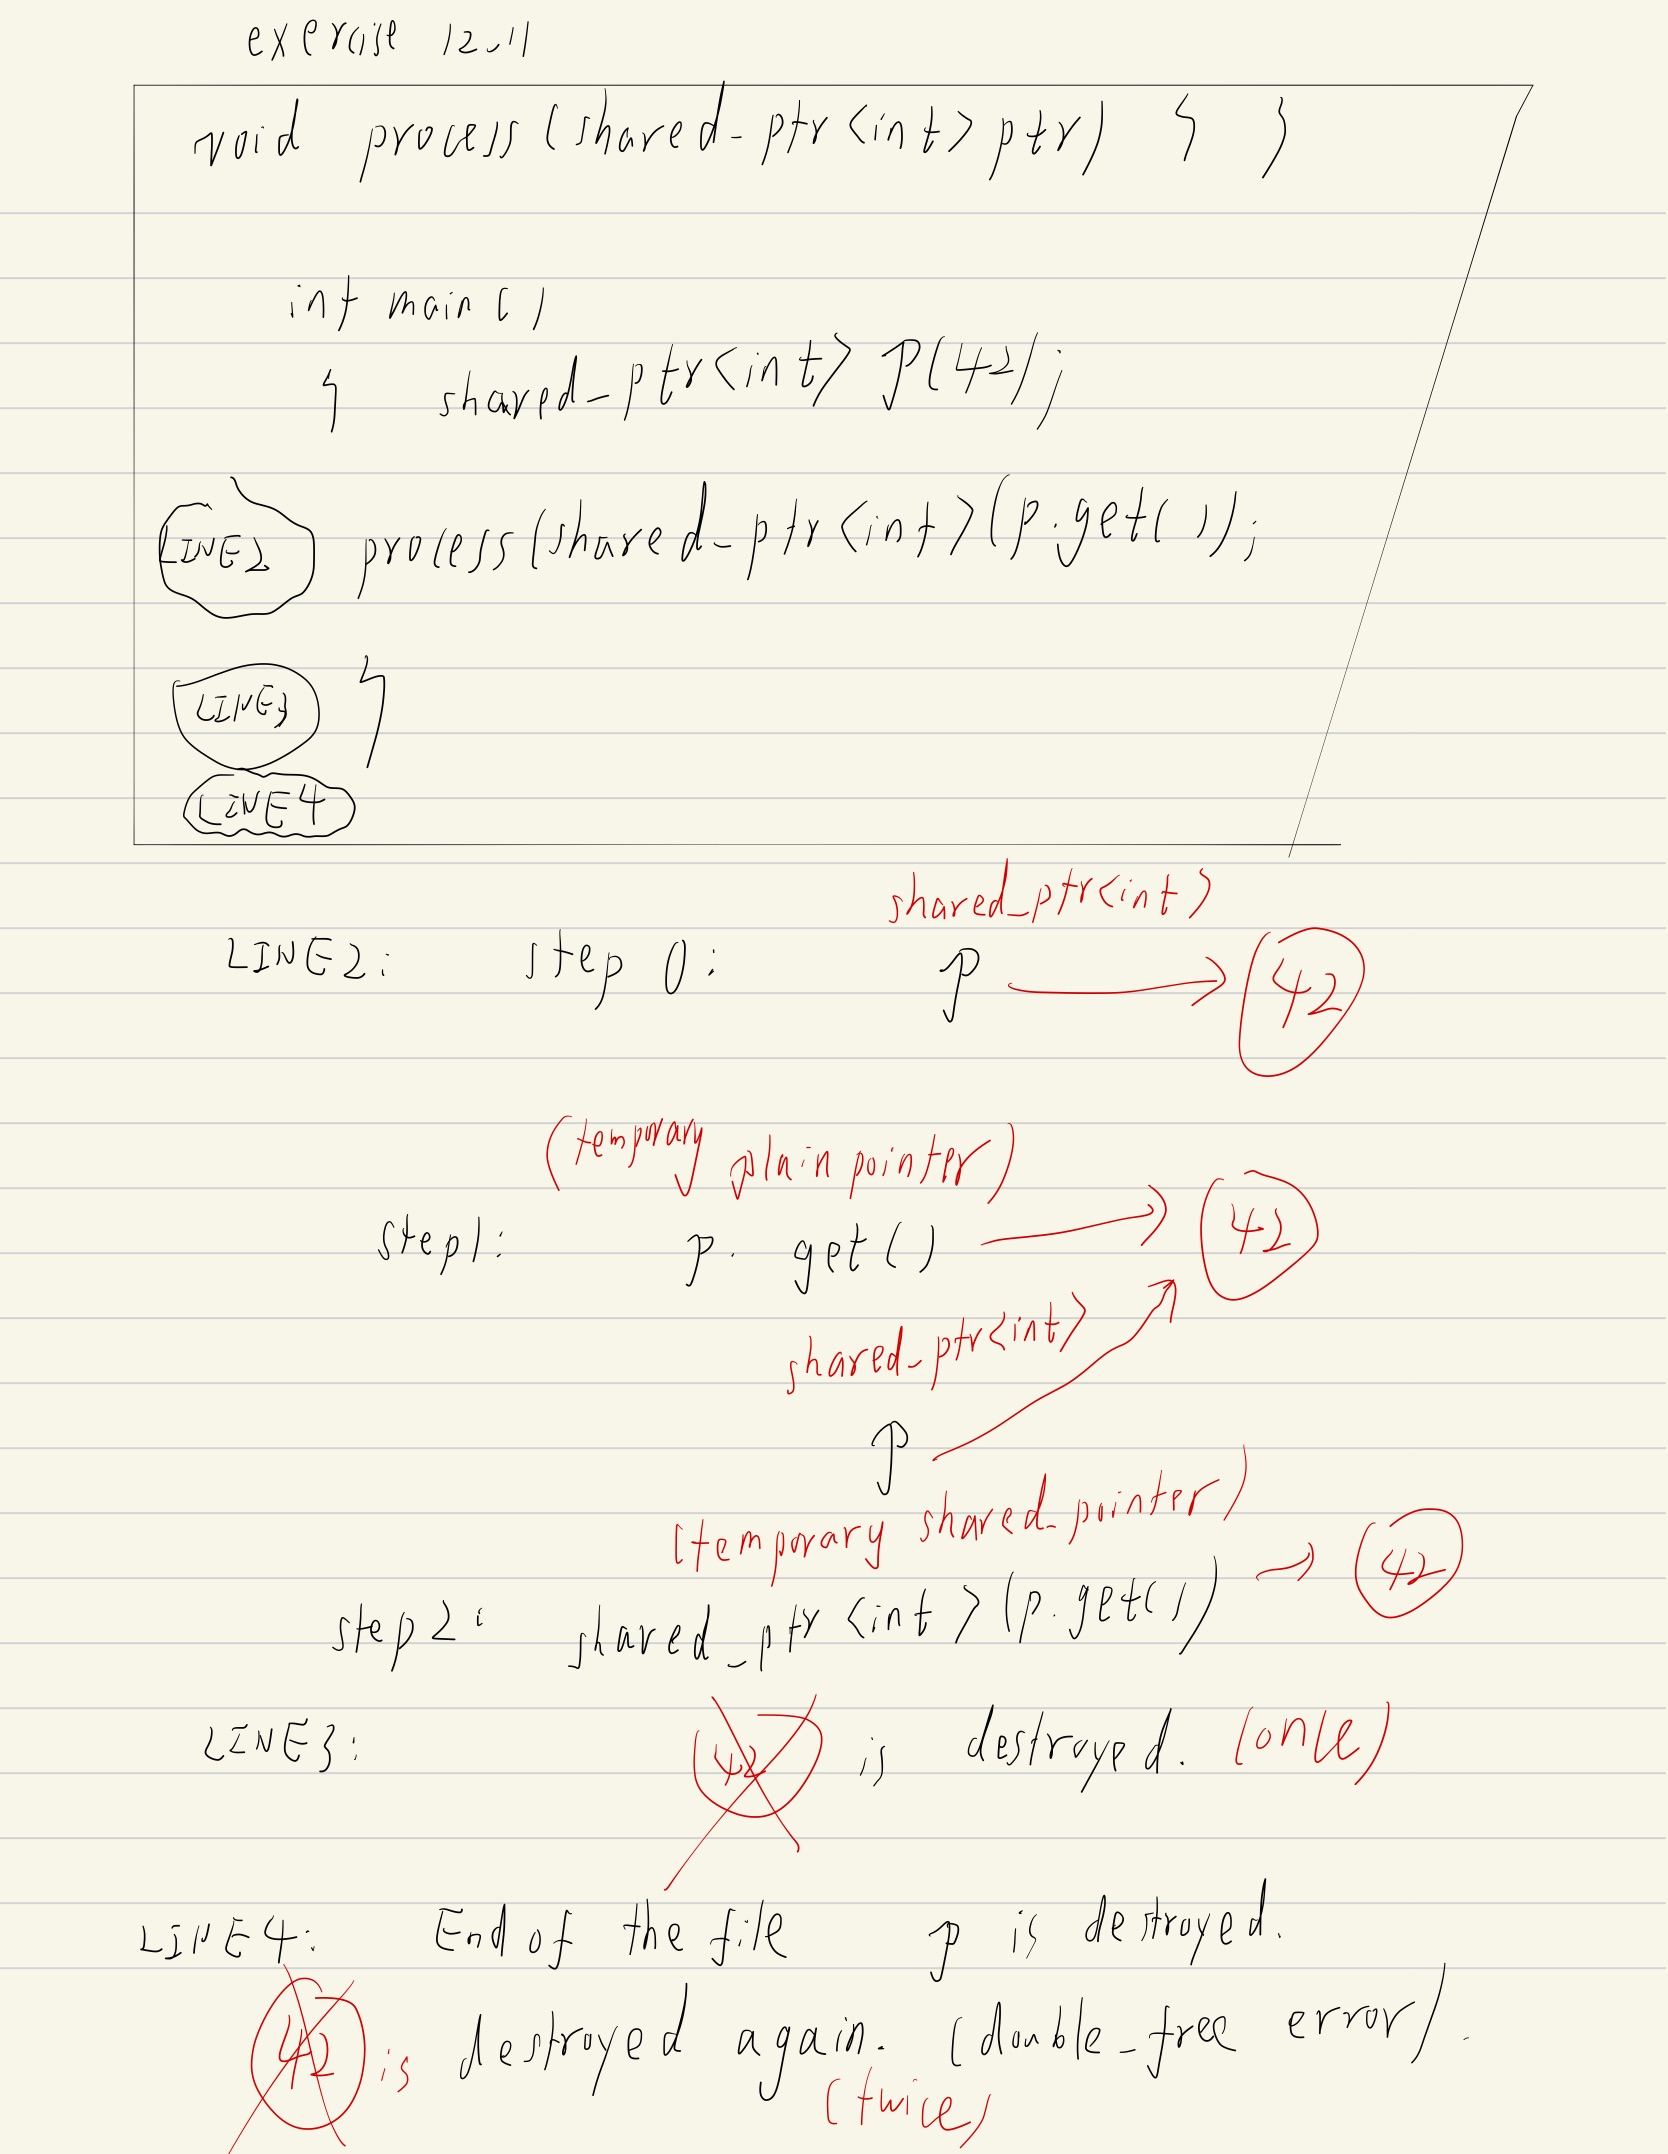 exercise 12.11
void process(shared_ptr<int> ptr) { }
int main()
{ shared_ptr<int> p(42);
LINE2 process(shared_ptr<int>(p.get());
LINE3 }
LINE4
shared_ptr<int>
LINE2: step 0: p → 42
(temporary plain pointer)
step1: p. get() → 42
shared_ptr<int>
p
(temporary shared_pointer)
step2: shared_ptr<int>(p.get()) → 42
LINE3: 42 is destroyed. (once)
LINE4: End of the file p is destroyed.
42 is destroyed again. (double_free error).
(twice)